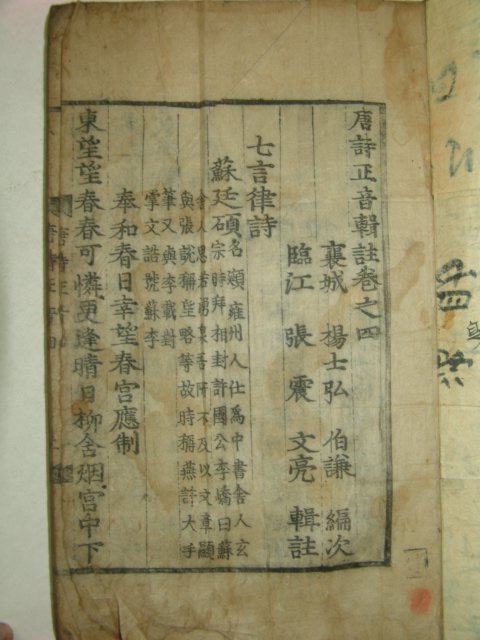 唐詩正音輯註卷之四
襄城 楊士弘 伯謙 編次
臨江 張震 文亮 輯註
七言律詩
蘇廷碩
名頲雍州人仕爲中書舍人玄
宗時拜相封許國公李嶠曰蘇
舍人思若湧泉吾所不及以文章顯
與張說稱望略等故時稱燕許大手
筆又與李乂對
掌文誥號蘇李
奉和春日幸望春宮應制
東望望春春可憐更逢晴日柳含烟宮中下